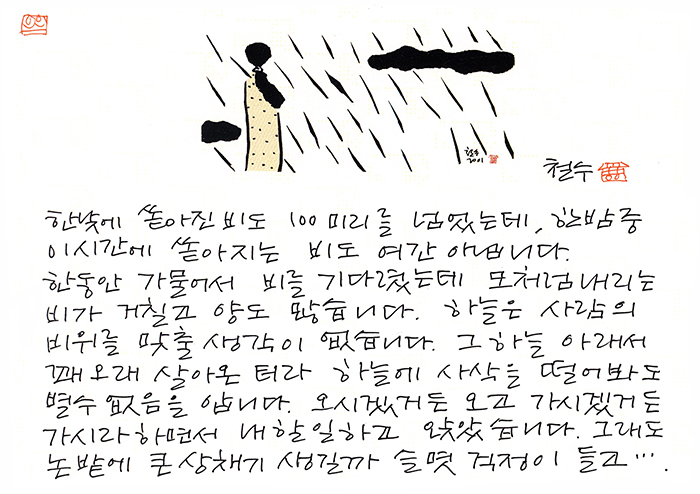 철수
2001
철수
한낮에 쏟아진 비도 100미리를 넘었는데, 한밤중
이시간에 쏟아지는 비도 여간 아닙니다.
한동안 가물어서 비를 기다렸는데 모처럼 내리는
비가 거칠고 양도 많습니다. 하늘은 사람의
비위를 맞출 생각이 없습니다. 그 하늘 아래서
꽤 오래 살아온 터라 하늘에 사삭을 떨어봐도
별수 없음을 압니다. 오시겠거든 오고 가시겠거든
가시라 하면서 내 할 일 하고 앉았습니다. 그래도
논밭에 큰 상채기 생길까 슬몃 걱정이 들고….